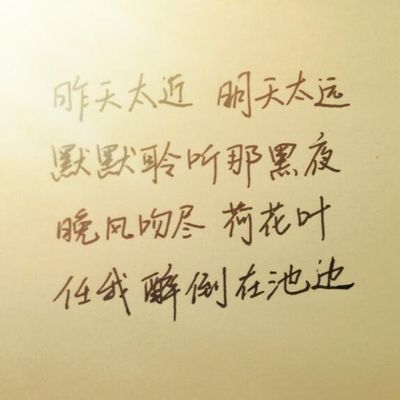 昨天太近 明天太远
默默聆听那黑夜
晚风吻尽 荷花叶
任我醉倒在池边